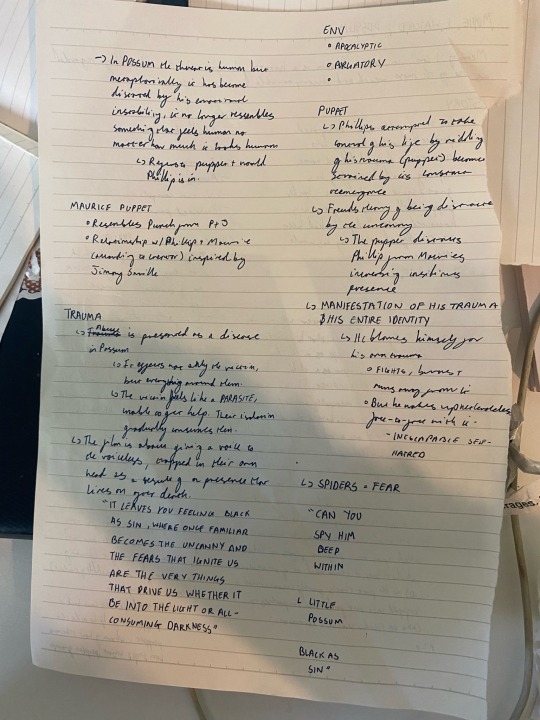 → In POSSUM the threat is human but
metaphorically is has become
distorted by his environment
instability, is no longer resembles
something that feels human no
matter how much it looks human
↳ Refers to puppet + world
Phillip is in.
MAURICE PUPPET
• Resembles Punch from P+J
• Relationship w/ Phillip + Maurice
(according to creator) inspired by
Jimmy Saville
TRAUMA
↳ Abuse is presented as a disease
in Possum
↳ It affects not only the victim,
but everything around them.
↳ The victim feels like a PARASITE,
unable to get help. Their isolation
gradually consumes them.
↳ The film is about giving a voice to
the voiceless, trapped in their own
head as a result of a presence that
lives on your death.
"IT LEAVES YOU FEELING BLACK
AS SIN, WHERE ONCE FAMILIAR
BECOMES THE UNCANNY AND
THE FEARS THAT IGNITE US
ARE THE VERY THINGS
THAT DRIVE US WHETHER IT
BE INTO THE LIGHT OR ALL-
CONSUMING DARKNESS"
ENV
• APOCALYPTIC
• PURGATORY
•
PUPPET
↳ Phillips attempted to take
control of his life by ridding
of his trauma (puppet) become
strained by its constant
reemergence
↳ Freuds theory of being
by the uncanny
↳ The puppet distances
Phillip from Mauries
increasing insidious
presence
↳ MANIFESTATION OF HIS TRAUMA
& HIS ENTIRE IDENTITY
↳ He blames himself for
his own trauma
• FIGHTS, burns +
runs away from it
• But he wakes up
face-to-face with it
- INESCAPABLE SELF-
HATRED
↳ SPIDERS = FEAR
"CAN YOU
SPY HIM
DEEP
WITHIN
L LITTLE
POSSUM
BLACK AS
SIN"